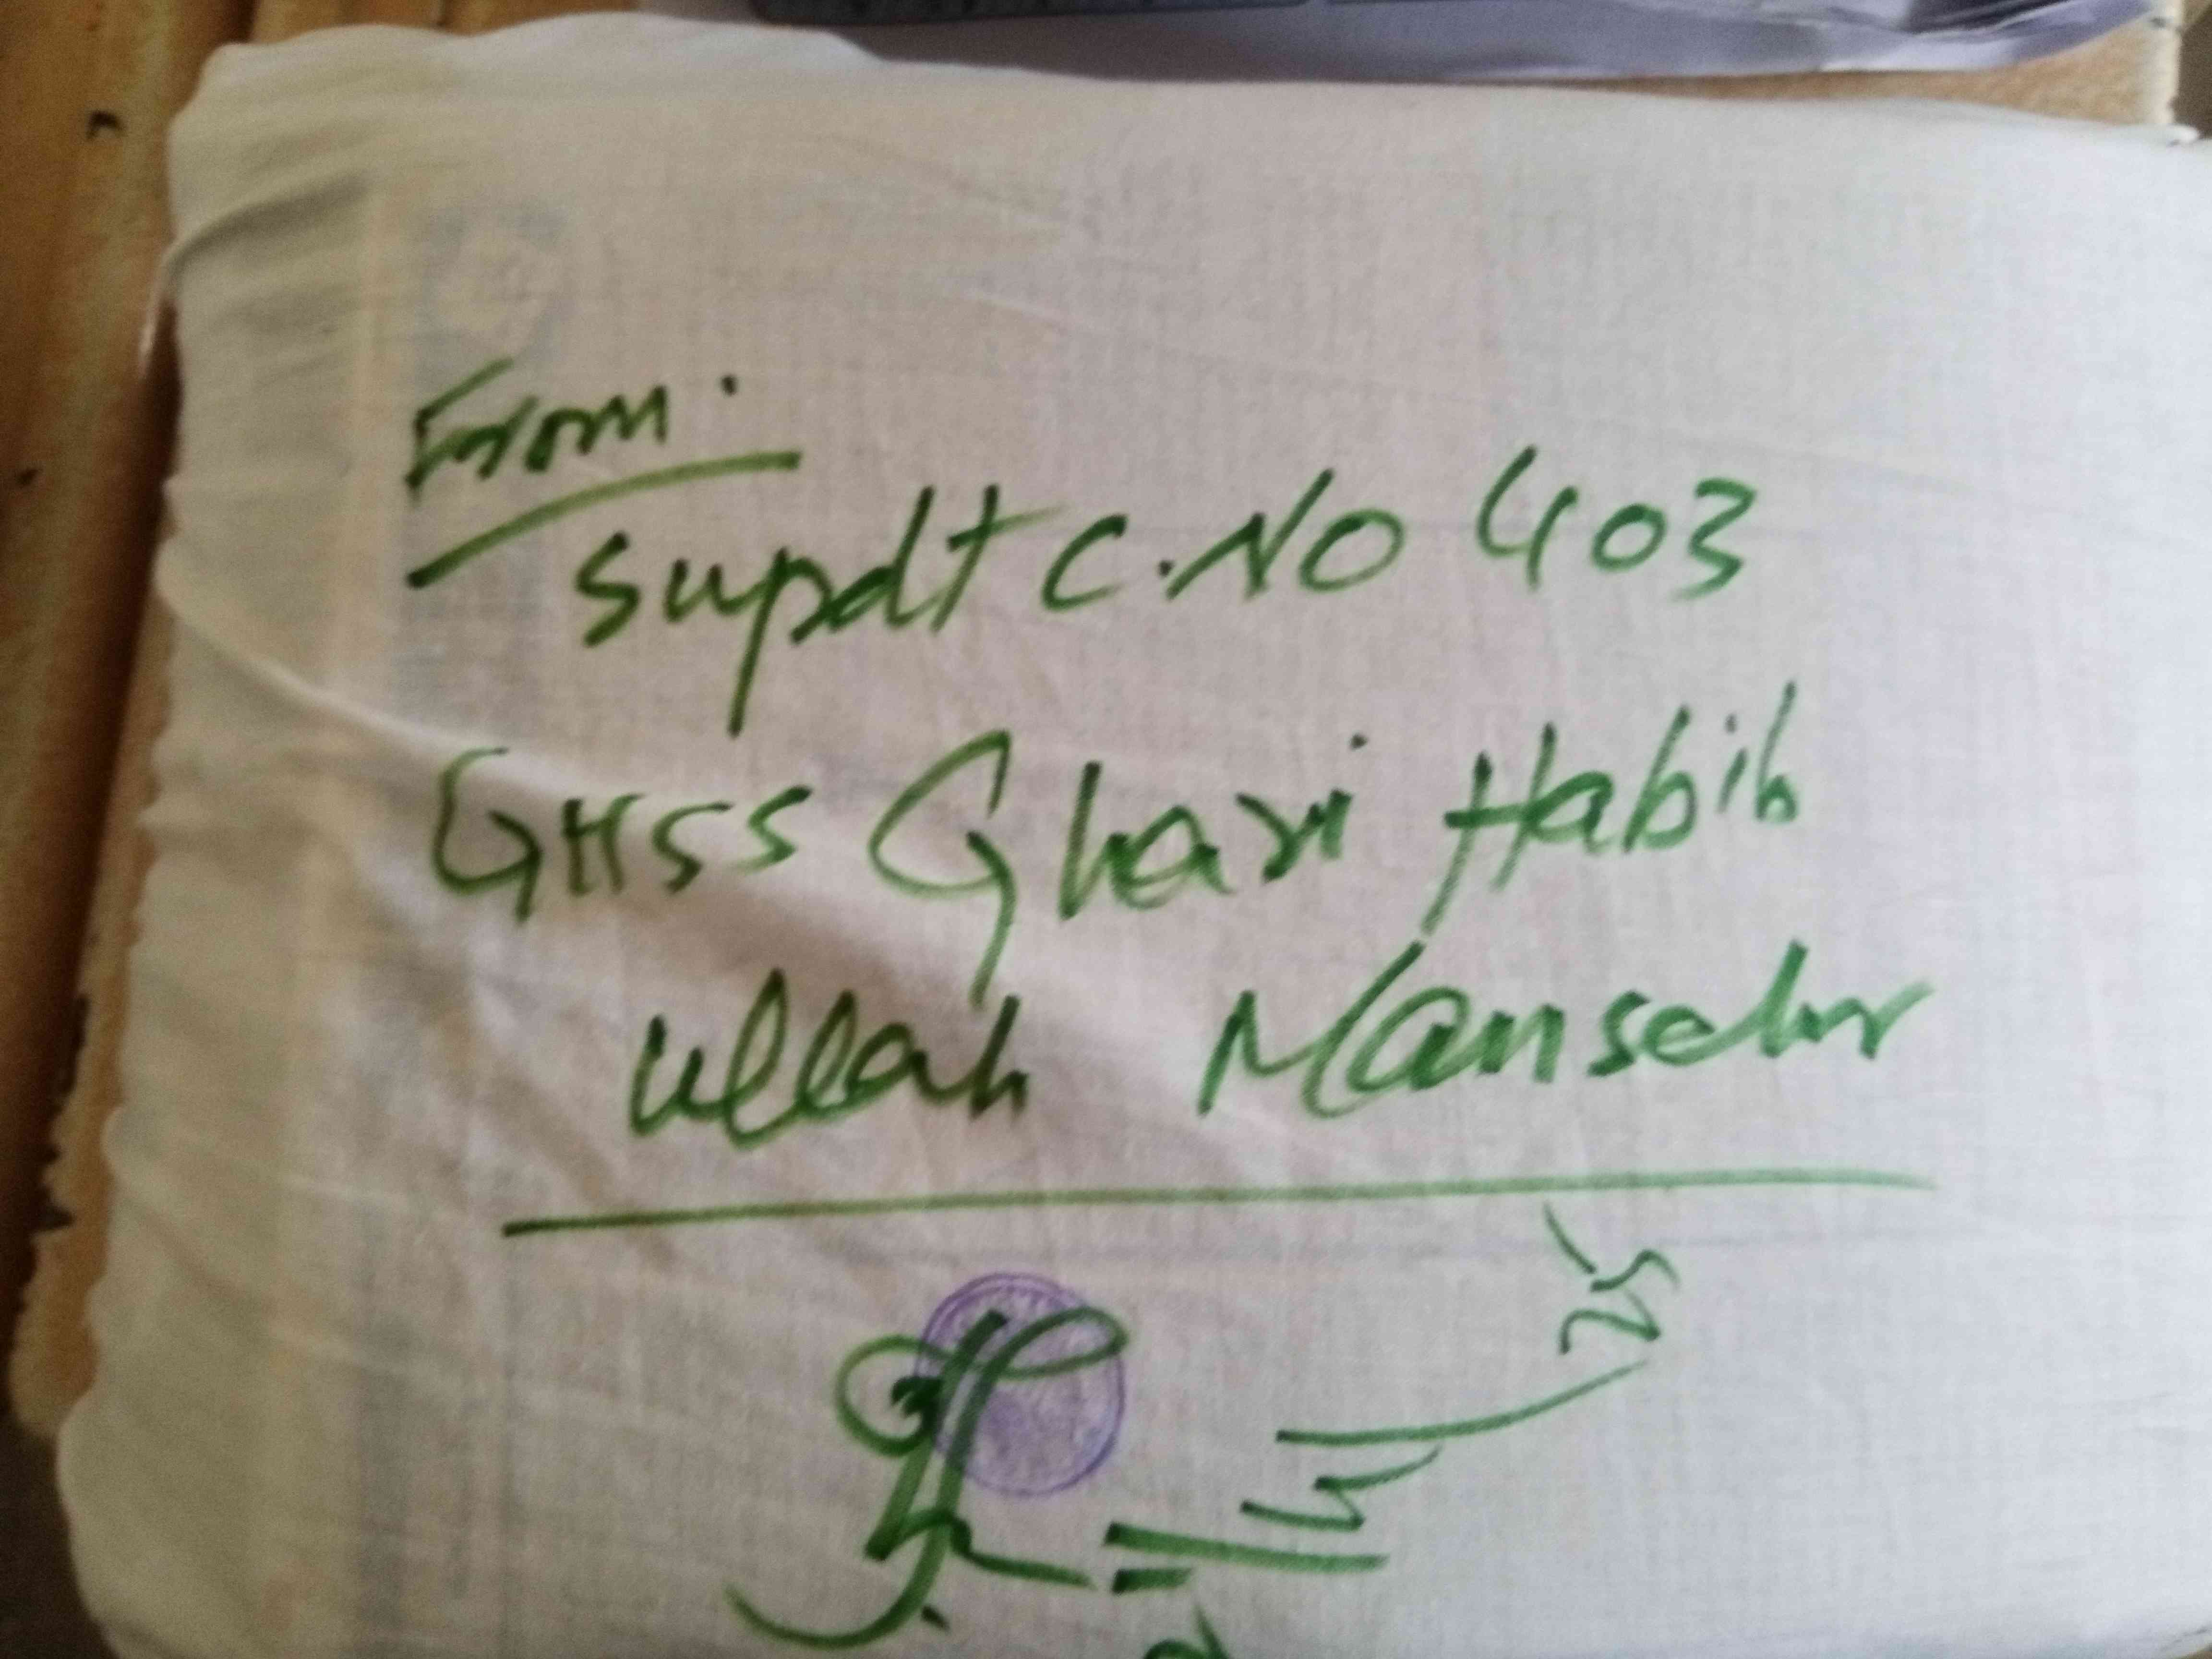 From.
Supdt C.NO 403
GHSS Ghari Habib
ullah Mansehr